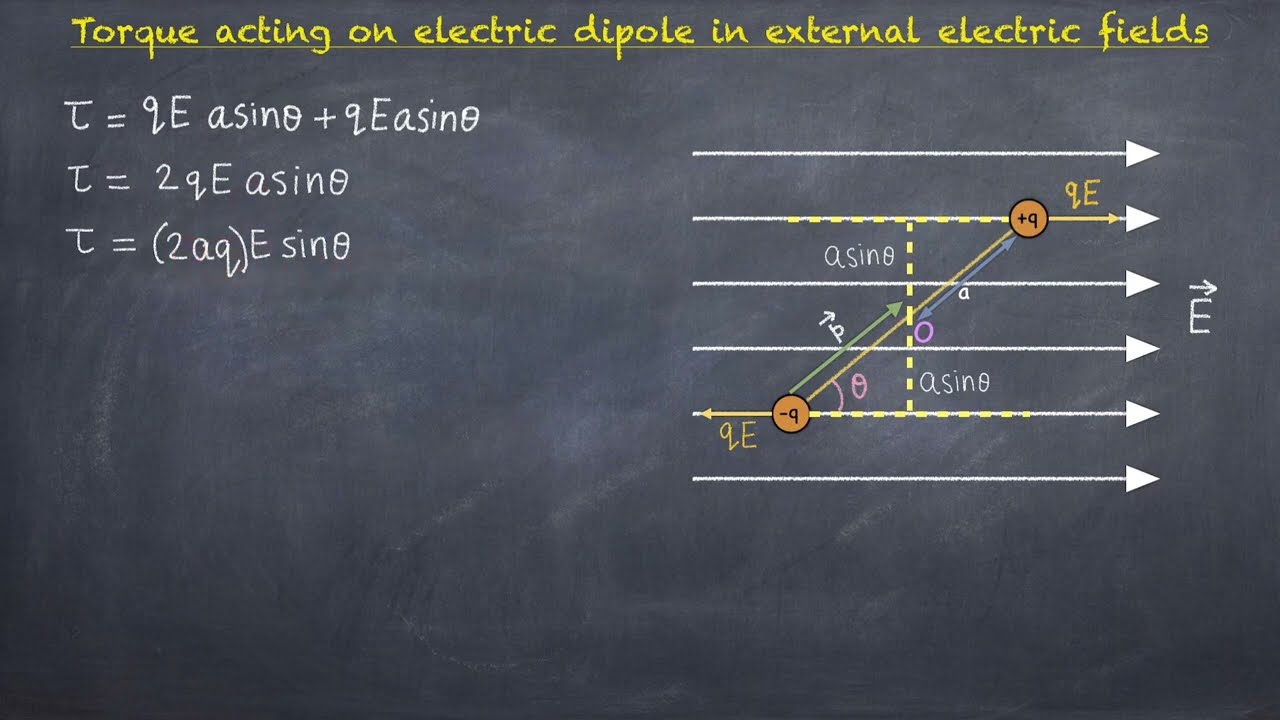 Torque acting on electric dipole in external electric fields
τ = qE asinθ + qEasinθ
τ = 2qE asinθ
τ = (2aq)E sinθ
qE
+q
asinθ
a
E
p
O
θ
asinθ
-q
qE